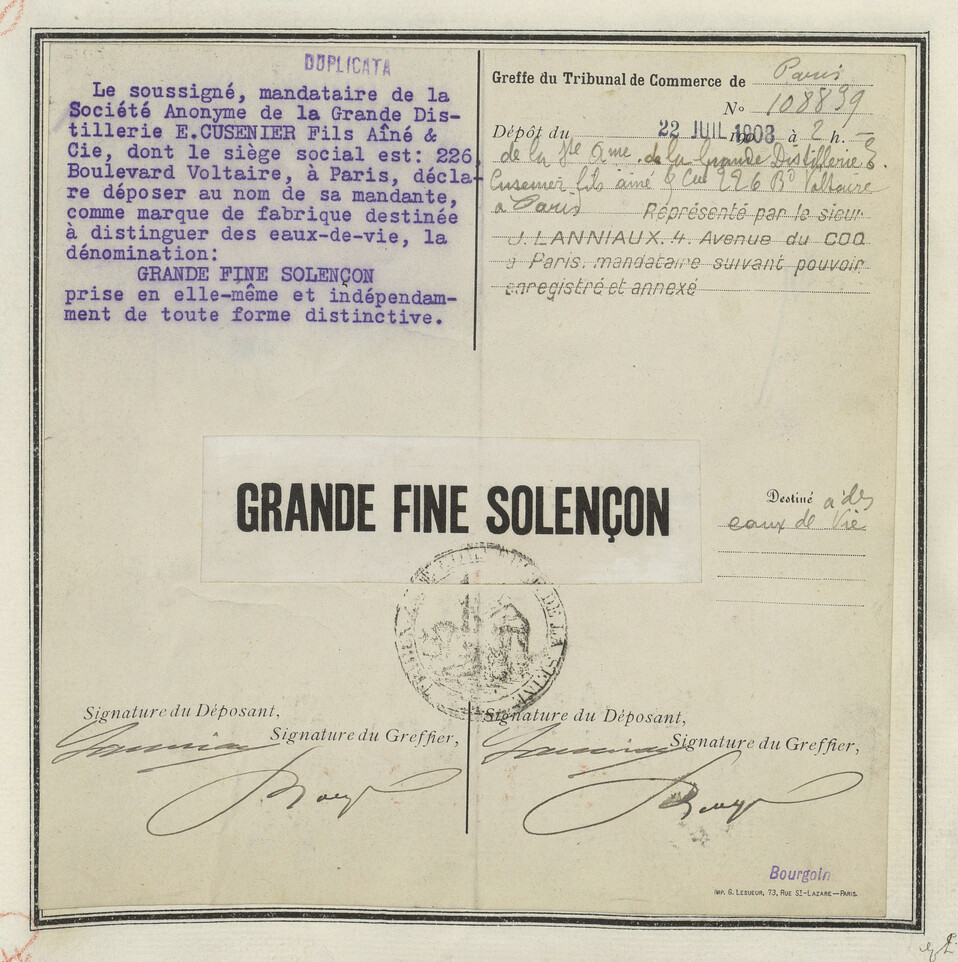 DUPLICATA
Le soussigné, mandataire de la
Société Anonyme de la Grande Dis-
tillerie E.CUSENIER Fils Aîné &
Cie, dont le siège social est: 226,
Boulevard Voltaire, à Paris, décla-
re déposer au nom de sa mandante,
comme marque de fabrique destinée
à distinguer des eaux-de-vie, la
dénomination:
GRANDE FINE SOLENÇON
prise en elle-même et indépendam-
ment de toute forme distinctive.
Greffe du Tribunal de Commerce de Paris
No 108839
Dépôt du 22 JUIL 1908 à 2 h.
de la Sté Ame. de la Grande Distillerie E.
Cusenier fils ainé & Cie 226 Bd Voltaire
a Paris Représenté par le sieur
J. LANNIAUX. 4. Avenue du COQ
à Paris. mandataire suivant pouvoir
enregistré et annexé
GRANDE FINE SOLENÇON
Destiné à des
eaux de Vie
DE LA SEINE
Signature du Déposant,
Signature du Greffier,
Signature du Déposant,
Signature du Greffier,
Bourgoin
IMP. G. LESUEUR, 73, RUE ST-LAZARE—PARIS.